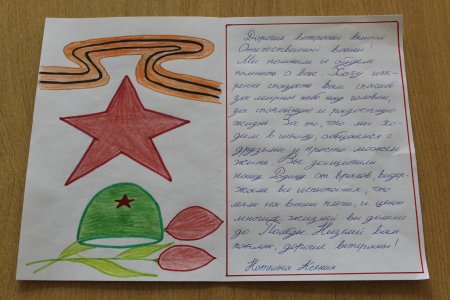 Дорогие ветераны Великой
Отечественной войны!
Мы помним и будем
помнить о вас. Хочу иск-
ренне сказать вам спасибо
за мирное небо над головой,
за спокойную и радостную
жизнь. За то, что мы хо-
дим в школу, общаемся с
друзьями и просто можем
жить. Вы защитили
нашу Родину от врагов, выдер-
жали все испытания, что
легли на ваши плечи, и ценой
многих жизней вы дошли
до Победы. Низкий вам
поклон, дорогие ветераны!
Ксения